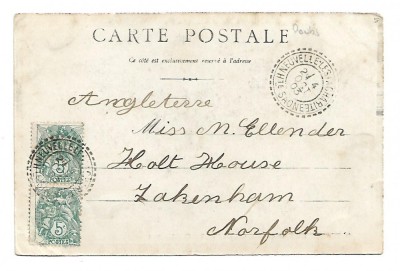 CARTE POSTALE
Ce côté est exclusivement réservé à l'adresse
Angleterre
Miss M. Ellender
Holt House
Fakenham
Norfolk
5
POSTES
5
POSTES